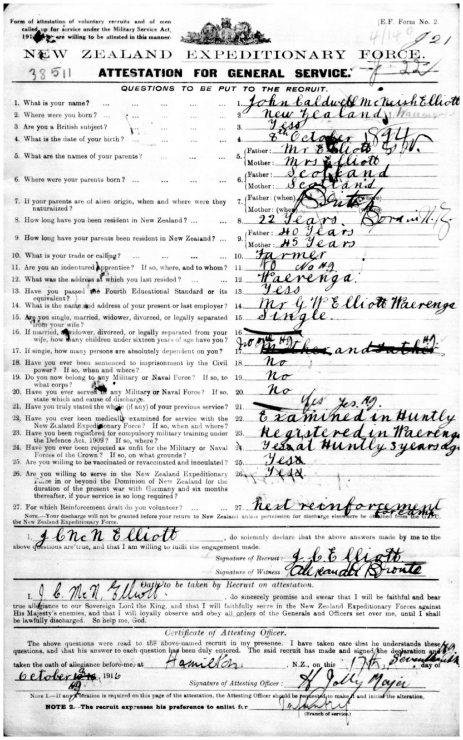 Form of attestation of voluntary recruits and of men
called up for service under the Military Service Act,
1916, who are willing to be attested in this manner.
[E.F. Form No. 2.
4/140
921
NEW ZEALAND EXPEDITIONARY FORCE.
38511
ATTESTATION FOR GENERAL SERVICE.
QUESTIONS TO BE PUT TO THE RECRUIT.
1. What is your name? ... 1. John Caldwell McNeish Elliott
2. Where were you born? ... 2. New Zealand
3. Are you a British subject? ... 3. Yess
4. What is the date of your birth? ... 4. 8th October 1894
5. What are the names of your parents? ... 5. Father: Mr Elliott
Mother: Mrs Elliott
6. Where were your parents born? ... 6. Father: Scotland
Mother: Scotland
7. If your parents are of alien origin, when and where were they
naturalized? ... 7. Father: (when) (where)
Mother: (when) British
8. How long have you been resident in New Zealand? ... 8. 22 Years. Born in N.Z.
9. How long have your parents been resident in New Zealand? ... 9. Father: 40 Years
Mother: 45 Years
10. What is your trade or calling? ... 10. Farmer
11. Are you an indentured apprentice? If so, where, and to whom? 11. No
12. What was the address of which you last resided? ... 12. Waerenga
13. Have you passed the Fourth Educational Standard or its
equivalent? ... 13. Yess
14. What is the name and address of your present or last employer? ... 14. Mr G W Elliott Waerenga
15. Are you single, married, widower, divorced, or legally separated
from your wife? ... 15. Single.
16. If married, widower, divorced, or legally separated from your
wife, how many children under sixteen years of age have you? 16.
17. If single, how many persons are absolutely dependent on you? 17. Mother and father
18. Have you ever been sentenced to imprisonment by the Civil
power? If so, when and where? ... 18. No
19. Do you now belong to any Military or Naval Force? If so, to
what corps? ... 19. No
20. Have you ever served in any Military or Naval Force? If so,
state which and cause of discharge. ... 20. No
21. Have you truly stated the whole (if any) of your previous service? 21. Yes
22. Have you ever been medically examined for service with the
New Zealand Expeditionary Force? If so, when and where? 22. Examined in Huntly
23. Have you been registered for compulsory military training under
the Defence Act, 1909? If so, where? ... 23. Registered in Waerenga
24. Have you ever been rejected as unfit for the Military or Naval
Forces of the Crown? If so, on what grounds? ... 24. Yess at Huntly 3 years ago
25. Are you willing to be vaccinated or revaccinated and inoculated? 25. Yess
26. Are you willing to serve in the New Zealand Expeditionary
Force in or beyond the Dominion of New Zealand for the
duration of the present war with Germany and six months
thereafter, if your service is so long required? 26. Yess
27. For which Reinforcements draft do you volunteer? ... 27. Next reinforcement
Note.—Your discharge will not be granted before your return to New Zealand unless permission for discharge elsewhere be obtained from the G.O.C.
the New Zealand Expeditionary Force.
I, J C McN Elliott, do solemnly declare that the above answers made by me to the
above questions are true, and that I am willing to fulfil the engagement made.
Signature of Recruit: J. C. Elliott
Signature of Witness: Alexander Bronte
Oath to be taken by Recruit on attestation.
I, J C. McN. Elliott, do sincerely promise and swear that I will be faithful and bear
true allegiance to our Sovereign Lord the King, and that I will faithfully serve in the New Zealand Expeditionary Forces against
His Majesty's enemies, and that I will loyally observe and obey all orders of the Generals and Officers set over me, until I shall
be lawfully discharged. So help me, God.
Certificate of Attesting Officer.
The above questions were read to the above-named recruit in my presence. I have taken care that he understands these
questions, and that his answer to each question has been duly entered. The said recruit has made and signed the declaration and
taken the oath of allegiance before me at Hamilton N.Z., on this 17th day of
October 1916
Signature of Attesting Officer: H Jolly Major
Note 1.—If any alteration is required on this page of the attestation, the Attesting Officer should be requested to make it and initial the alteration.
NOTE 2.—The recruit expresses his preference to enlist for Infantry
(Branch of service)